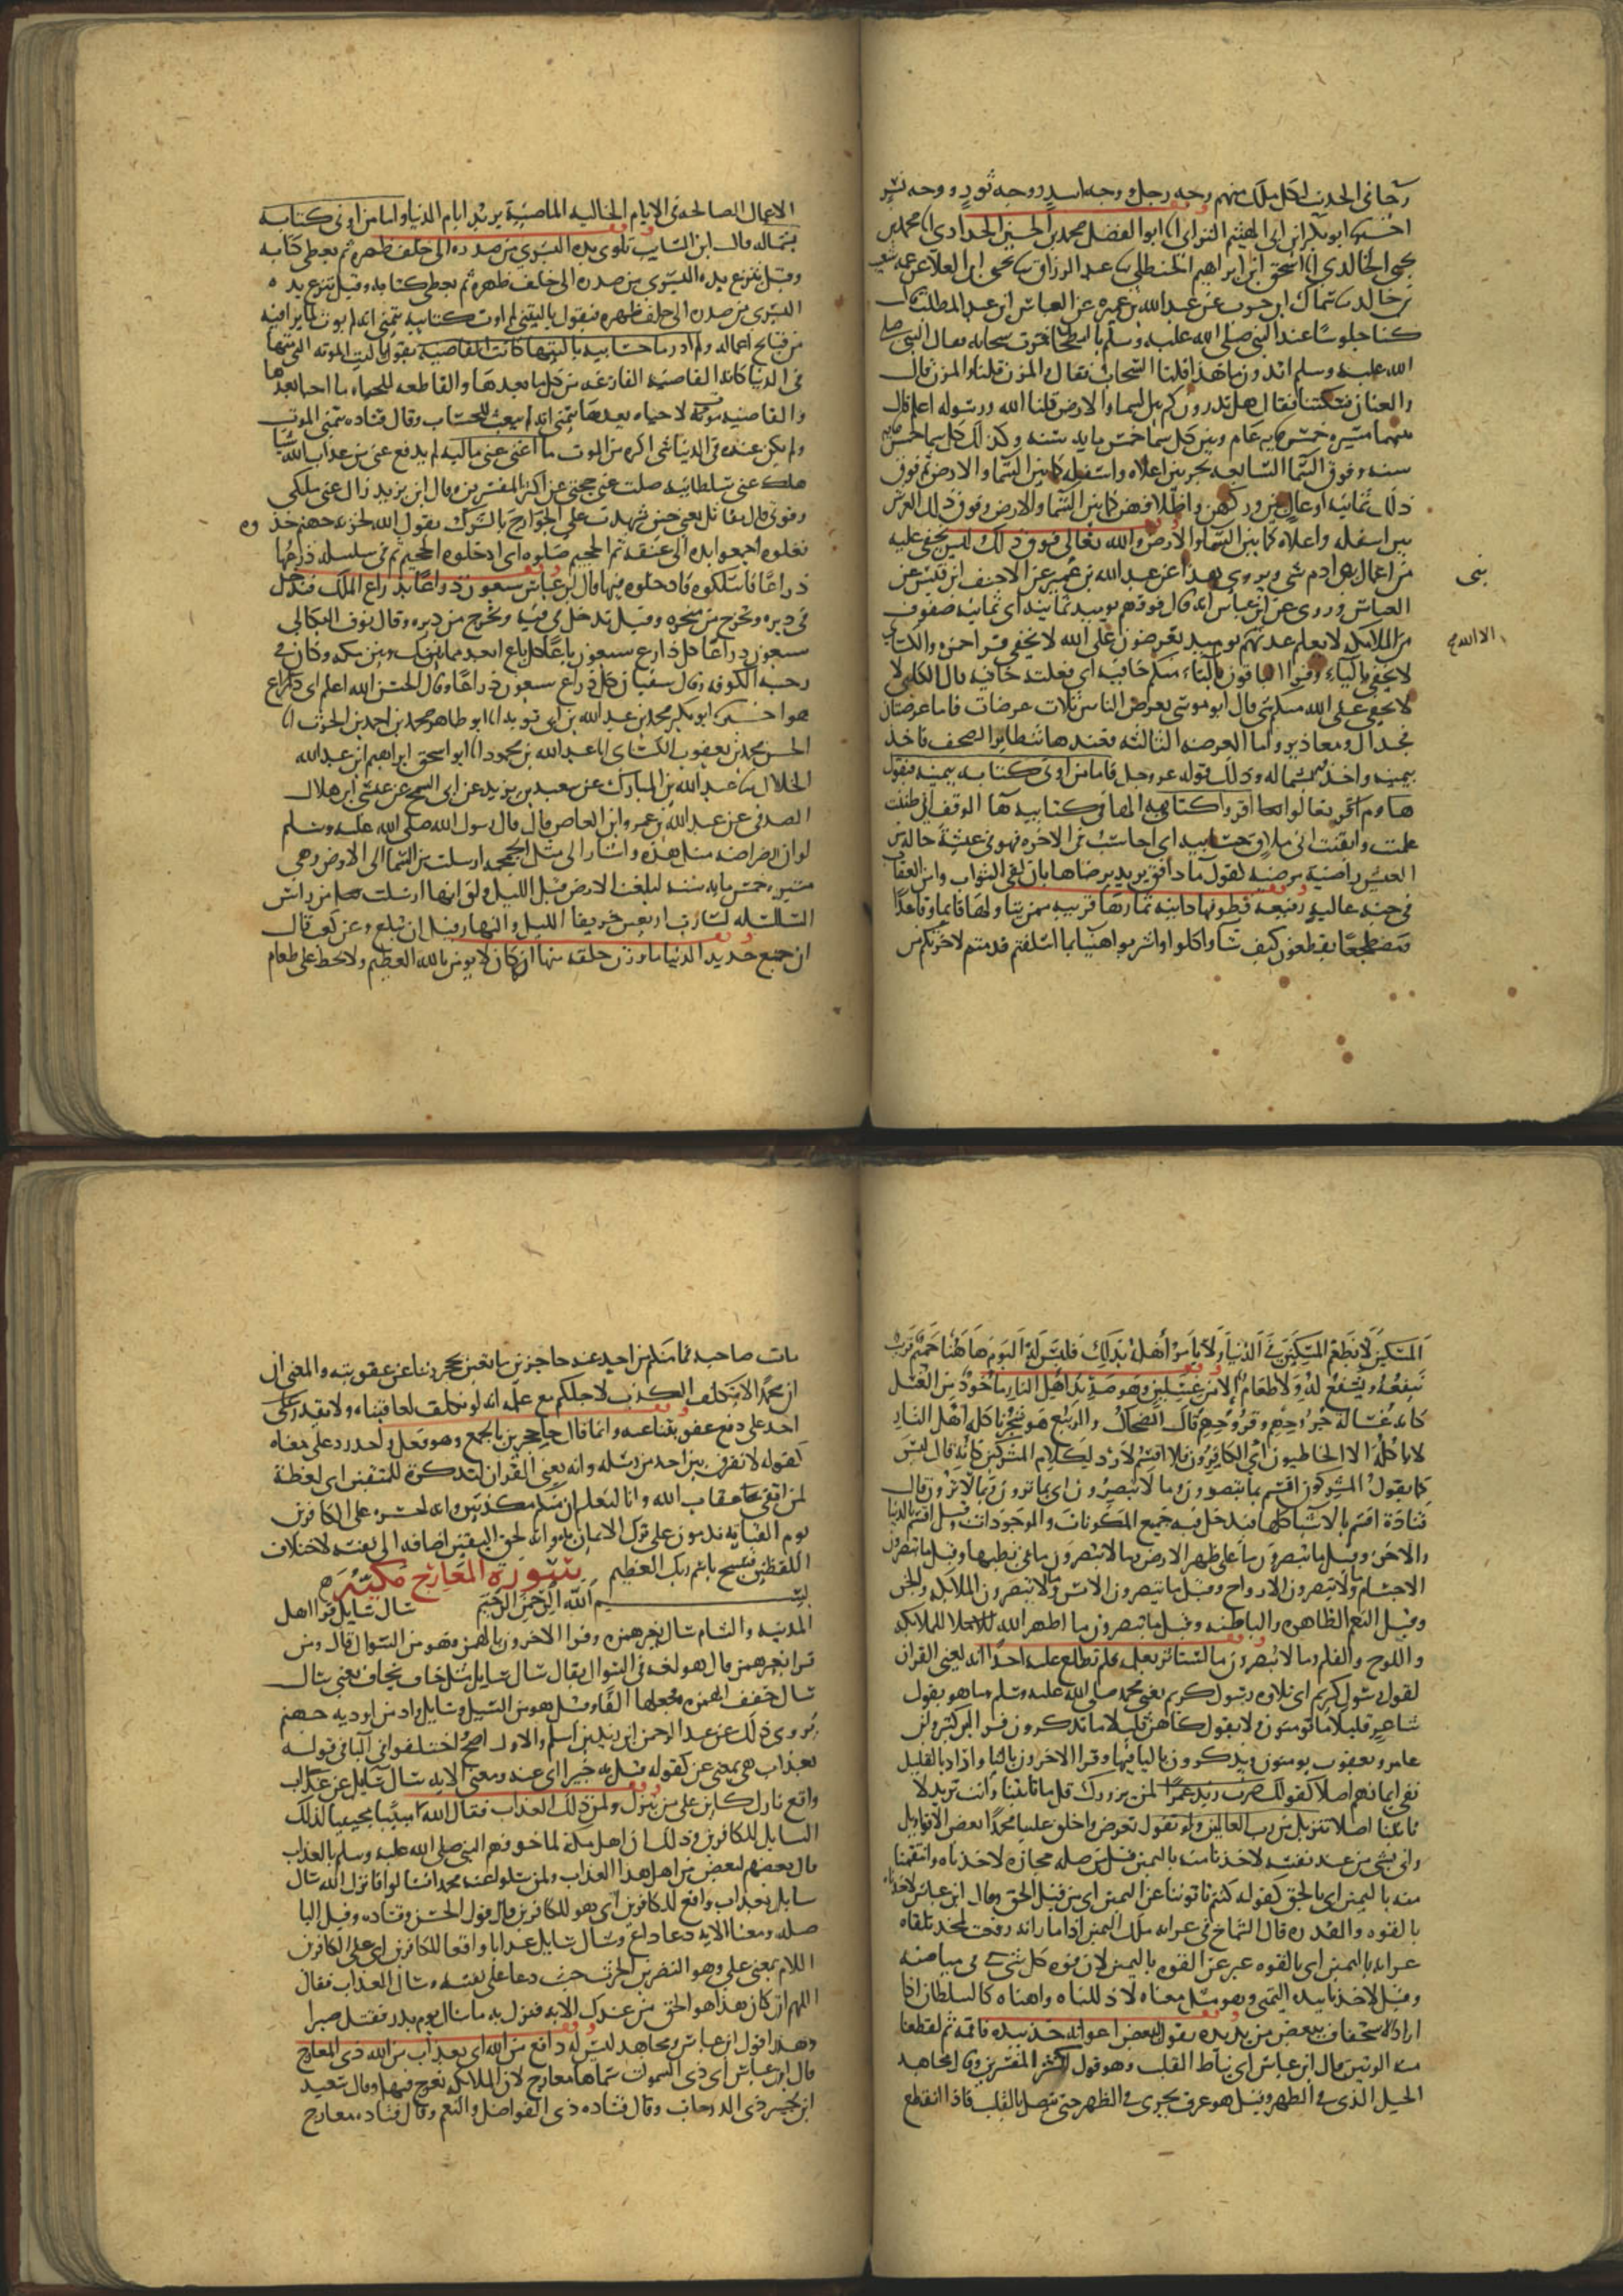 وجاء في الحديث لكل ملك منهم وجه رجل ووجه اسد ووجه ثور ووجه نسر
اخبرنا ابو بكر ابن ابي الهيثم الترابي انا ابو الفضل محمد بن الحسين الحدادي انا محمد بن
يحيى الخالدي انا اسحق ابن ابراهيم الحنظلي نا عبد الرزاق نا يحيى ابن العلا عن عمه شعيب
بن خالد نا سماك ابن حرب عن عبد الله بن عميره عن العباس ابن عبد المطلب قال
كنا جلوسا عند النبي صلى الله عليه وسلم بالبطحا فمرت سحابه فقال النبي صلى
الله عليه وسلم اتدرون ما هذا قلنا السحاب فقال والمزن قلنا والمزن قال
والعنان فسكتنا فقال هل تدرون كم بين السما والارض قلنا الله ورسوله اعلم قال
بينهما مسيرة خمس مايه عام وبين كل سما خمس مايه سنه وكذلك كل سما خمس مايه
سنه وفوق السما السابعه بحر بين اعلاه واسفله كما بين السما والارض ثم فوق
ذلك ثمانيه اوعال بين وركهن واظلافهن كما بين السما والارض وفوق ذلك العرش
بين اسفله واعلاه كما بين السما والارض والله تعالى فوق ذلك ليس يخفى عليه
من اعمال بني ادم شي ويروى هذا عن عبد الله بن عمير عن الاحنف ابن قيس عن
بنى
العباس وروى عن ابن عباس انه قال فوقهم يوميذ ثمانيه اي ثمانيه صفوف
من الملايكه لا يعلم عدتهم يوميذ تعرضون على الله لا تخفى قرا حمزه والكسايي
الا الله
لا يخفى باليا وقرا الباقون بالتاء منكم خافيه اي فعلت خافيه قال الكلبي لا
لا يخفى على الله منكم شي قال ابو موسى يعرض الناس ثلاث عرضات فاما عرضتان
فجدال ومعاذير واما العرضه الثالثه فعندها تتطاير الصحف فاخذ
بيمينه واخذ بشماله وذلك قوله عز وجل فاما من اوتي كتابه بيمينه فيقول
هاوم اقروا كتابيه
علمت وايقنت اني ملاق حسابيه اي احاسب في الاخره فهو في عيشة حاله من
العيش راضية مرضيه كقوله ما دافق يريد يرضاها بان لقي الثواب وامن العقاب
في جنه عاليه رفيعه قطوفها دانيه ثمارها قريبه لمن يتناولها قايما وقاعدا
ومضطجعا يقطفون كيف شاوا كلوا واشربوا هنيا بما اسلفتم قدمتم لاخرتكم من
الاعمال الصالحه في الايام الخاليه الماضيه يريد ايام الدنيا واما من اوتي كتابه
بشماله قال ابن السايب تلوى يده اليسرى من صدره الى خلف ظهره ثم يعطى كتابه
وقيل تنزع يده اليسرى من صدره الى خلف ظهره ثم يعطى كتابه وقيل تنزع يده
اليسرى من صدره الى خلف ظهره فيقول يا ليتني لم اوت كتابيه يتمنى انه لم يوت لما يرا فيه
من قبايح اعماله ولم ادر ما حسابيه يا ليتها كانت القاضيه يقول يا ليت الموته التي متها
في الدنيا كانت القاضيه الفارغه من كل ما بعدها والقاطعه للحياه ما احيا بعدها
والقاضيه موته لا حياه بعدها يتمنى انه لم يبعث للحساب وقال قتاده يتمنى الموت
ولم يكن عنده في الدنيا شي اكره من الموت ما اغنى عني ماليه لم يدفع عني من عذاب الله شيا
هلك عني سلطانيه ضلت عني حجتي عن اكثر المفسرين وقال ابن زيد زال عني ملكي
وقوتي قال مقاتل يعني حين شهدت على الجوارح بالشرك يقول الله لخزنه جهنم خذوه
فغلوه اجمعوا يده الى عنقه ثم الجحيم صلوه اي ادخلوه الجحيم ثم في سلسله ذرعها
ذراعا فاسلكوه فادخلوه فيها قال ابن عباس سبعون ذراعا بذراع الملك فتدخل
في دبره وتخرج من منخره وقيل تدخل في فيه وتخرج من دبره وقال نوف البكالي
سبعون ذراعا كل ذراع سبعون باعا كل باع ابعد مما بينك وبين مكه وكان في
رحبه الكوفه وقال سفيان كل ذراع سبعون ذراعا وقال الحسن الله اعلم اي ذراع
هو اخبرنا ابو بكر محمد بن عبد الله بن ابي توبه انا ابو طاهر محمد بن احمد بن الحرث انا
الحسن محمد بن يعقوب الكسائ انا عبد الله بن محمود انا ابو اسحق ابراهيم ابن عبد الله
الخلال نا عبد الله بن المبارك عن سعيد بن يزيد عن ابي السمح عن عيسى ابن هلال
الصدفي عن عبد الله بن عمرو ابن العاص قال قال رسول الله صلى الله عليه وسلم
لو ان رضراضه مثل هذه واشار الى مثل الجمجمه ارسلت من السما الى الارض وهي
مسيره خمس مايه سنه لبلغت الارض قبل الليل ولو انها ارسلت من راس
السلسله لسارت اربعين خريفا الليل والنهار قبل ان تبلغ وعن كعب قال
ان جميع حديد الدنيا ما وزن حلقه منها انه كان لا يومن بالله العظيم ولا يحض على طعام
المسكين لا يطعم المسكين في الدنيا ولا يامر اهله بذلك فليس له اليوم هاهنا حميم قريب
ينفعه ويشفع له ولا طعام الا من غسلين وهو صديد اهل النار ماخوذ من الغسل
كانه غساله جروحهم وقروحهم قال الضحاك والربيع هو شجر ياكله اهل النار
لا ياكله الا الخاطيون اي الكافرون فلا اقسم لا رد لكلام المشركين كانه قال ليس
كما يقول المشركون اقسم بما تبصرون وما لا تبصرون اي بما ترون وبما لا ترون قال
قتادة اقسم بالاشيا كلها فيدخل فيه جميع المكونات والموجودات وقيل اقسم بالدنيا
والاخره وقيل ما تبصرون ما على ظهر الارض وما لا تبصرون ما في بطنها وقيل ما تبصرون
الاجسام وما لا تبصرون الارواح وقيل ما تبصرون الانس وما لا تبصرون الملايكه والجن
وقيل النعم الظاهره والباطنه وقيل ما تبصرون ما اظهر الله للملايكه
واللوح والقلم وما لا تبصرون ما استاثر بعلمه فلم يطلع عليه احدا انه يعني القران
لقول رسول كريم اي تلاوه رسول كريم يعني محمد صلى الله عليه وسلم وما هو بقول
شاعر قليلا ما تومنون ولا بقول كاهن قليلا ما تذكرون قرا ابن كثير وابن
عامر ويعقوب يومنون ويذكرون باليا فيهما وقرا الاخرون بالتا واراد بالقليل
نفي ايمانهم اصلا كقولك لمن يزورك قل ما تاتينا وانت تريد لا
تاتينا اصلا تنزيل من رب العالمين ولو تقول تخرص واختلق علينا محمد بعض الاقاويل
واتى بشي من عند نفسه لاخذنا منه باليمين قيل من صله مجازه لاخذناه وانتقمنا
منه باليمين اي بالحق كقوله كنتم تاتوننا عن اليمين اي من قبل الحق وقال ابن عباس لاخذناه
بالقوه والقدره قال الشماخ في عرابه ملك اليمين اذا ما رايه رفعت لمجد تلقاه
عرابه باليمين اي بالقوه عبر عن القوه باليمين لان قوه كل شي في ميامنه
وقيل لاخذنا بيده اليمنى وهو مثل معناه لاذللناه واهناه كالسلطان اذا
اراد الاستخفاف ببعض من بين يديه يقول لبعض اعوانه خذ بيده فاقمه ثم لقطعنا
منه الوتين قال ابن عباس اي نياط القلب وهو قول اكثر المفسرين وقال مجاهد
الحبل الذي في الظهر وقيل هو عرق يجري في الظهر حتى يتصل بالقلب فاذا انقطع
مات صاحبه فما منكم من احد عنه حاجزين مانعين يحجزوننا عن عقوبته والمعنى ان
ان محمدا لا يتكلف الكذب لاجلكم مع علمه انه لو تكلف لعاقبناه ولا يقدر على
احد على دفع عقوبتنا عنه وانما قال حاجزين بالجمع وهو فعل واحد ردا على معناه
كقوله لا نفرق بين احد من رسله وانه يعني القران لتذكرة للمتقين اي لعظة
لمن اتقى عقاب الله وانا لنعلم ان منكم مكذبين وانه لحسره على الكافرين
يوم القيامه يندمون على ترك الايمان به وانه لحق اليقين اضافه الى نفسه لاختلاف
اللفظين فسبح باسم ربك العظيم سورة المعارج مكية
بسم الله الرحمن الرحيم سال سايل قرا اهل
المدينه والشام سال بغير همزه وقرا الاخرون بالهمز وهو من السوال قال ومن
قرا بغير همز قال هو لغه في السوال يقال سال سايل مثل خاف يخاف يعني سال
سال خفف الهمزه وجعلها الفا وقيل هو من السيل وسايل واد من اوديه جهنم
يروى ذلك عن عبد الرحمن ابن زيد بن اسلم والاول اصح واختلفوا في البا في قوله
بعذاب هي بمعنى عن كقوله فسل به خبيرا اي عنه ومعنى الايه سال سايل عن عذاب
واقع نازل كاين على من ينزل ولمن ذلك العذاب فقال الله مبينا مجيبا لذلك
السايل للكافرين وذلك ان اهل مكة لما خوفهم النبي صلى الله عليه وسلم بالعذاب
قال بعضهم لبعض من اهل هذا العذاب ولمن سلوا عنه محمدا فسالوا فانزل الله سال
سايل بعذاب واقع للكافرين اي هو للكافرين قال قول الحسن وقتاده وقيل البا
صله ومعنا الايه دعا داع وسال سايل عذابا واقعا للكافرين اي على الكافرين
اللام بمعنى على وهو النضر بن الحرث حيث دعا على نفسه وسال العذاب فقال
اللهم ان كان هذا هو الحق من عندك الايه فنزل به ما سال يوم بدر فقتل صبرا
وهذا قول ابن عباس ومجاهد ليس له دافع من الله اي بعذاب من الله ذي المعارج
قال ابن عباس اي ذي السموات سماها معارج لان الملايكه تعرج فيها وقال سعيد
ابن جبير ذي الدرجات وقال قتاده ذي الفواضل والنعم وقال قتاده معارج